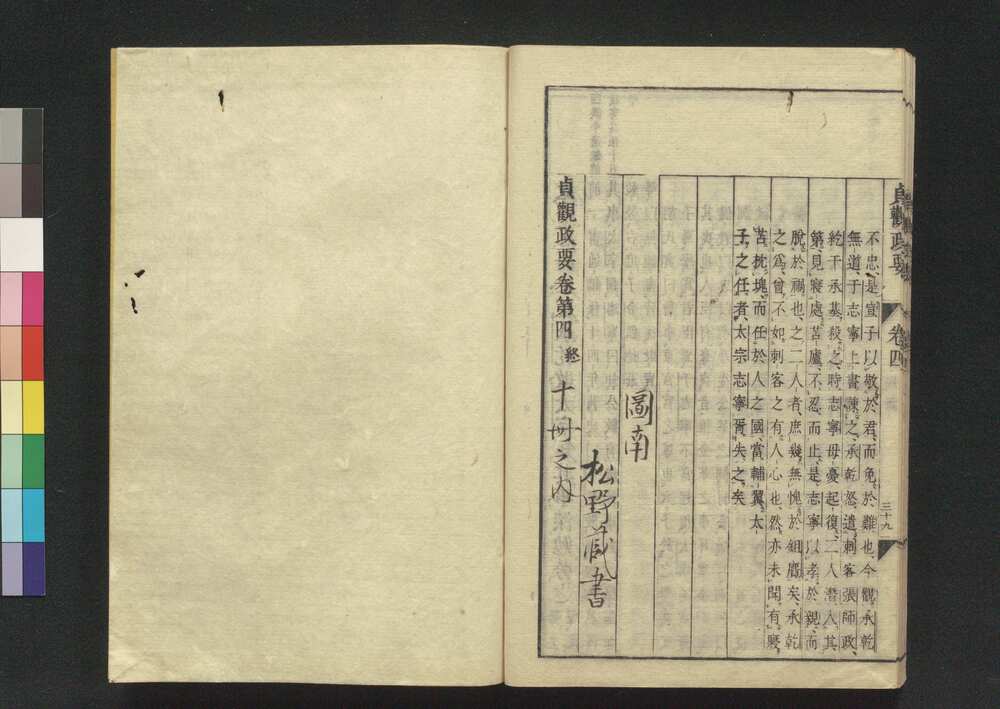 貞觀政要
卷四
三十九
不忠、是宣子以敬於君、而免於難也、今觀承乾
無道、于志寧上書諫之、承乾怒、遣刺客張師政、
紇干承基殺之、時志寧母憂起復、二人潛入其
第、見寢處苫廬、不忍而止、是志寧以孝於親、而
脫於禍也、之二人者、庶幾無愧於鉏麑矣、承乾
之爲、曾不如刺客之有人心也、然亦未聞有寢
苫枕塊、而任於人之國、當輔翼太
子之任者、太宗志寧胥失之矣
圖南
松野蔵書
貞觀政要卷第四 終
十冊之內